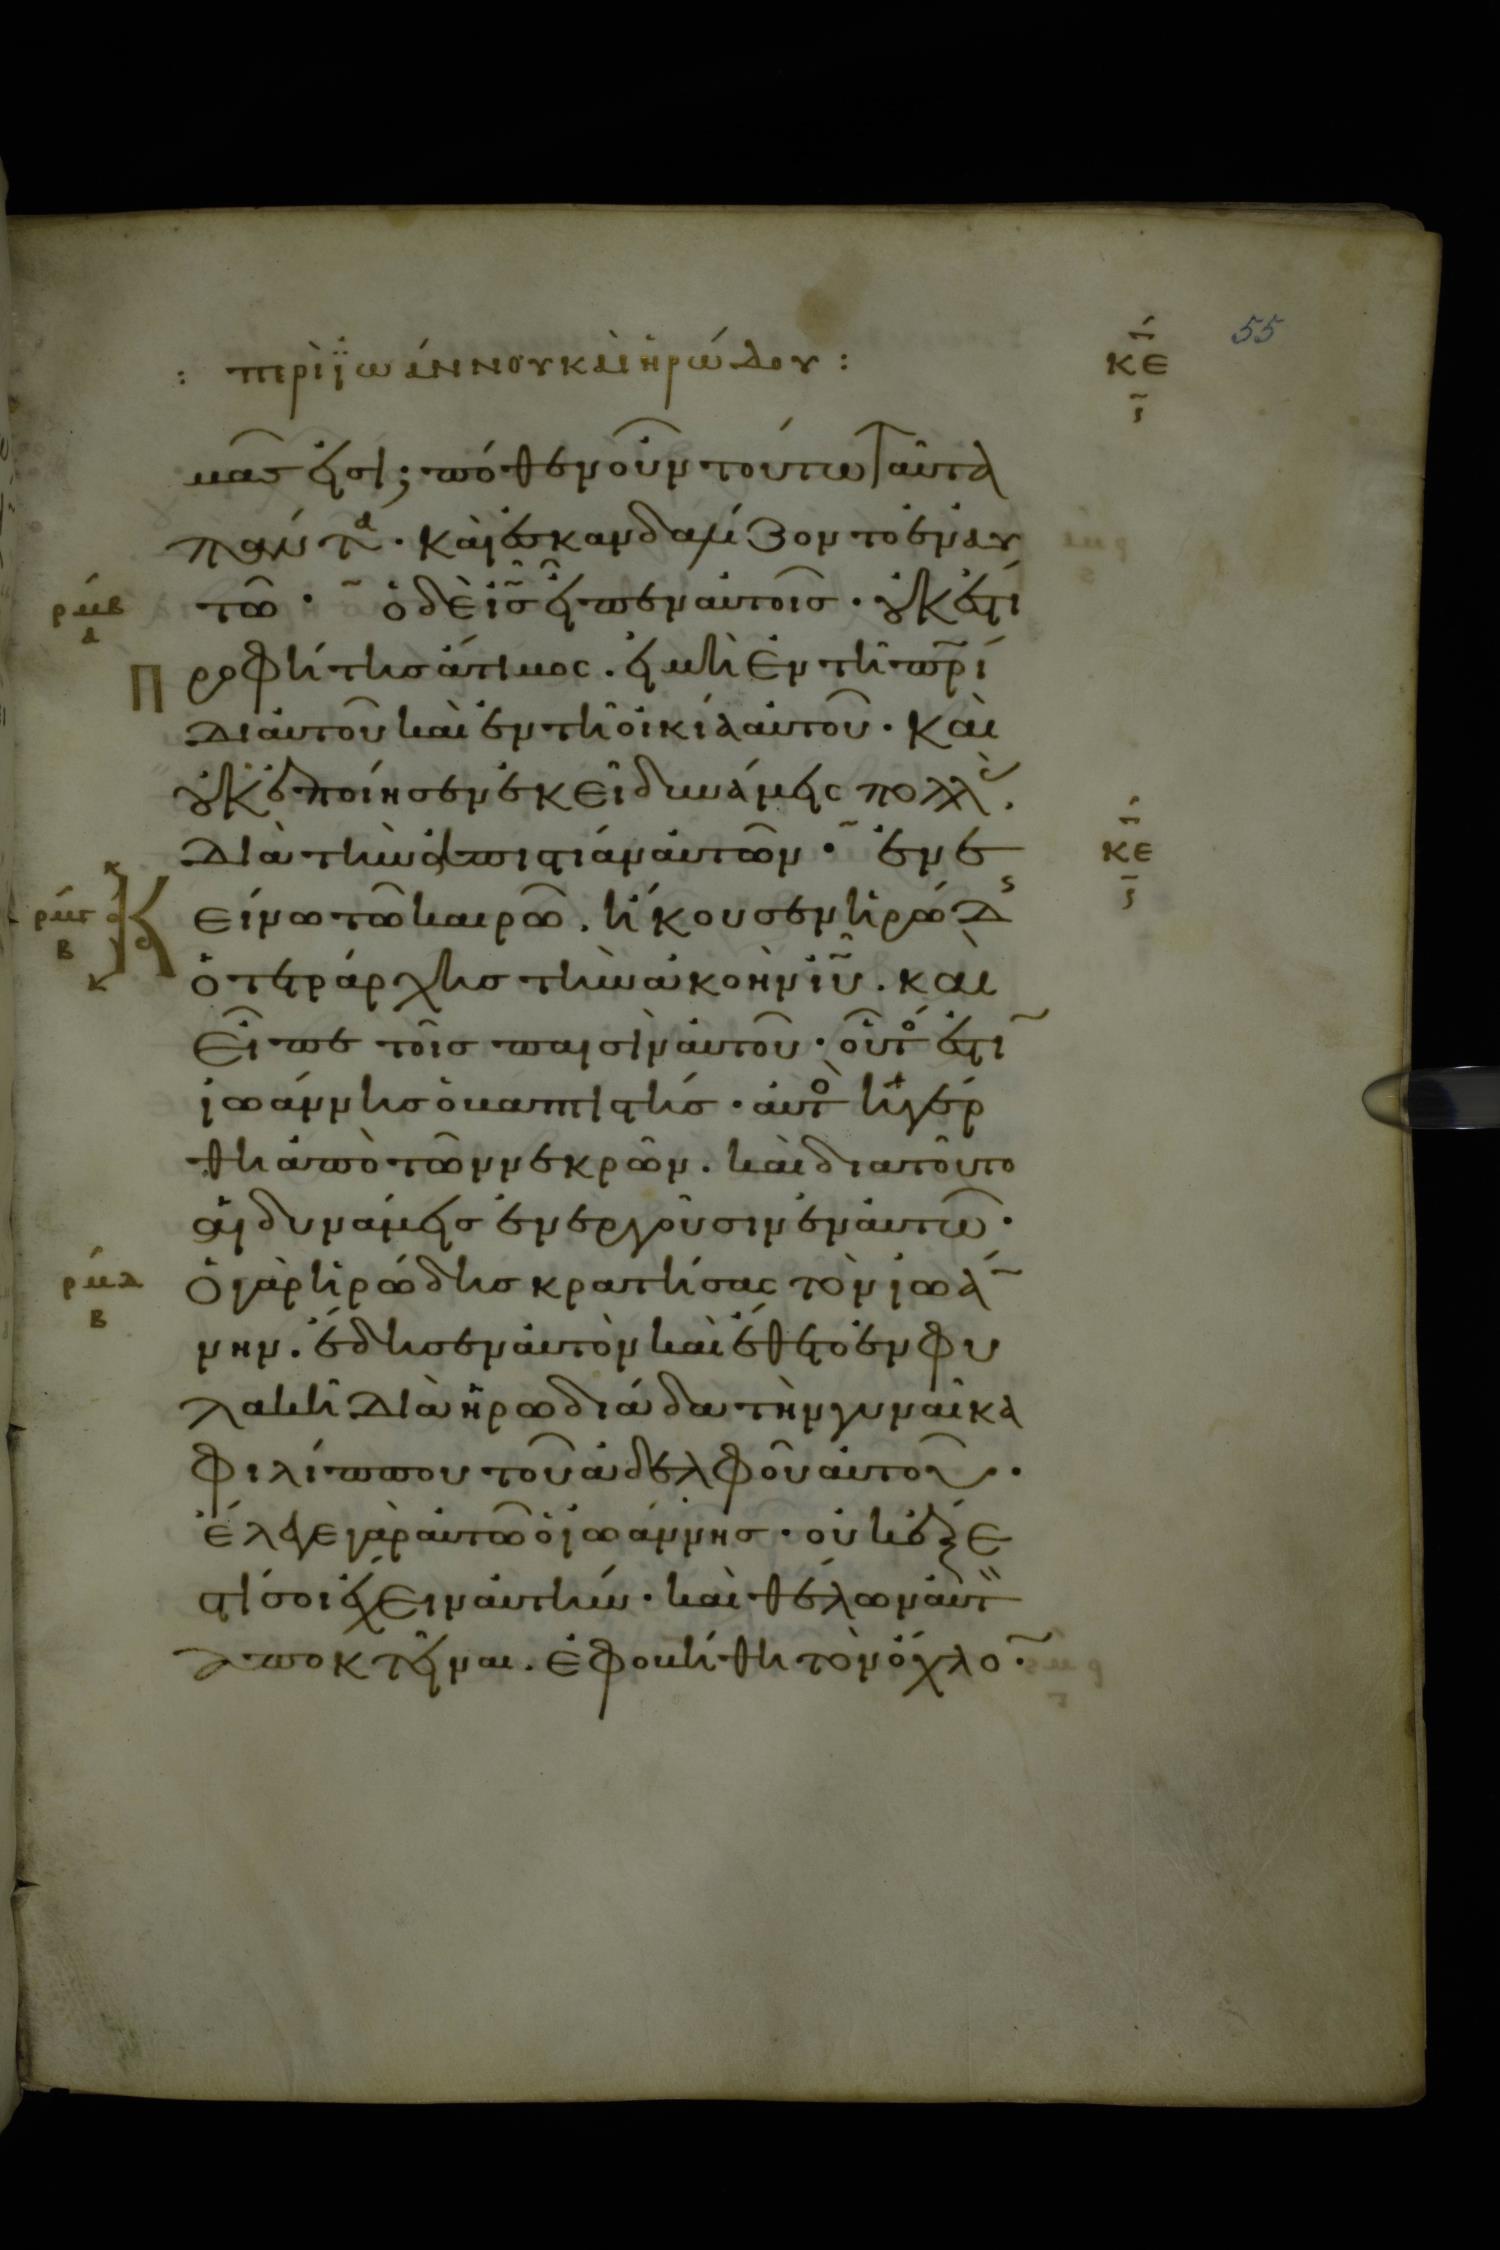 : περὶ ἰωάννου καὶ ἡρώδου :
κε
55
μᾶς εἰσί; πόθεν οὖν τούτω ταῦτα
πάντα. καὶ ἐσκανδαλίζοντο ἐν αυ
τῶ. ὁ δὲ ις εἶπεν αὐτοῖς. οὐκ ἔστι
ρμβ
α
Προφήτης ἄτιμος. εἰ μὴ ἐν τῆ πρί
δι αὐτοῦ καὶ ἐν τῆ οἰκία αὐτοῦ. καὶ
οὐκ ἐποίησεν ἐκεῖ δυνάμεις πολλάς.
διὰ τὴν ἀπιστίαν αὐτῶν. ἐν ἐ
κε
ρμγ
β
Κείνω τῶ καιρῶ. ἤκουσεν ἡρώδης
ὁ τετράρχης τὴν ἀκοὴν ιυ. καὶ
εἶπε τοῖς παισὶν αὐτοῦ. οὗτός ἐστιν
ἰωάννης ὁ βαπτιστής. αὐτὸς ἠγέρ
θη ἀπὸ τῶν νεκρῶν. καὶ διατοῦτο
αἱ δυνάμεις ἐνεργοῦσιν ἐν αὐτῶ.
ρμδ
β
Ὁ γὰρ ἡρώδης κρατήσας τὸν ἰωάν
νην. ἔδησεν αὐτὸν καὶ ἔθετο ἐν φυ
λακῆ διὰ ἡρωδιάδα τὴν γυναῖκα
φιλίππου τοῦ ἀδελφοῦ αὐτοῦ.
ἔλεγε γὰρ αὐτῶ ὁ ἰωάννης. οὐκ ἔξε
στί σοι ἔχειν αὐτήν. καὶ θέλων αὐτὸν
ἀποκτεῖναι. ἐφοβήθη τὸν ὄχλον.